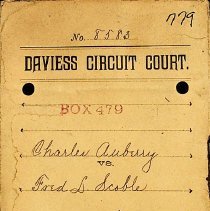 779
No. 8583
DAVIESS CIRCUIT COURT.
BOX 479
Charles Auberry
vs.
Fred L. Scoble